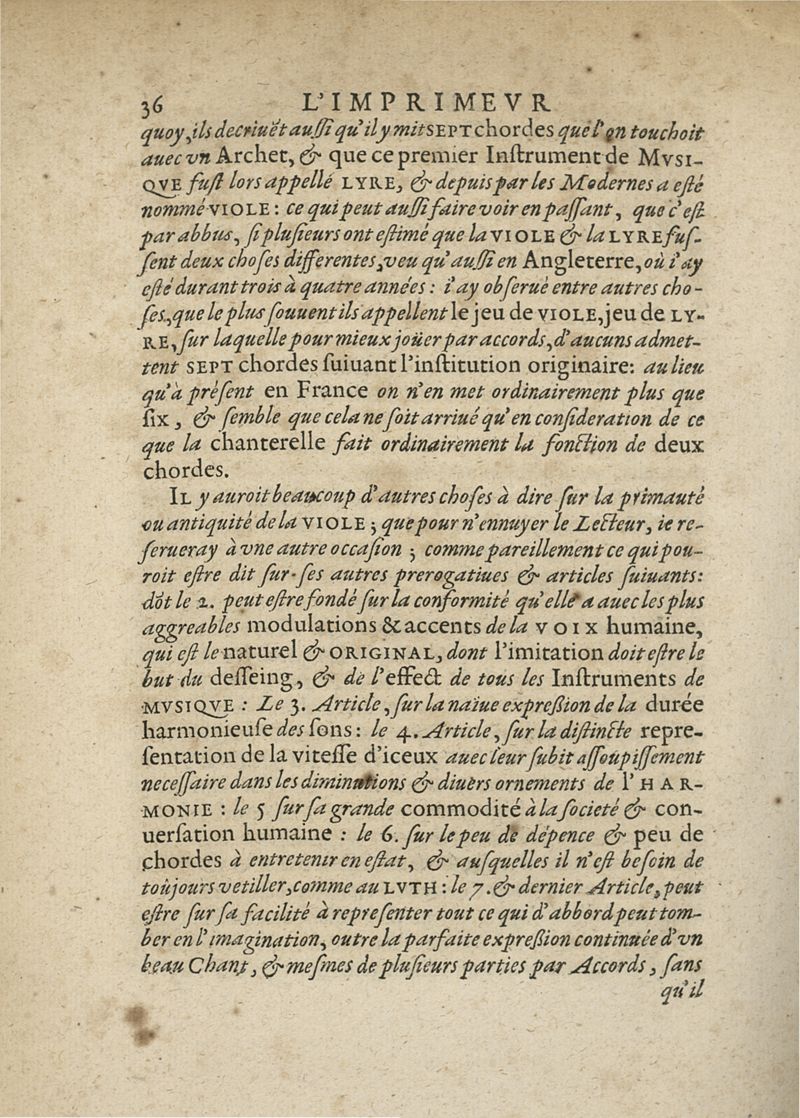 36 L'IMPRIMEVR
quoy, ils decriuẽt aussi qu'il y mit SEPT chordes que l'on touchoit
auec vn Archet, & que ce premier Instrument de MVSI-
QVE fust lors appellé LYRE, & depuis par les Modernes a esté
nommé VIOLE : ce qui peut aussi faire voir en passant, que c'est
par abbus, si plusieurs ont estimé que la VIOLE & la LYRE fus-
sent deux choses differentes, veu qu'aussi en Angleterre, où i'ay
esté durant trois à quatre années : i'ay obserué entre autres cho-
ses, que le plus souuent ils appellent le jeu de VIOLE, jeu de LY-
RE, sur laquelle pour mieux joüer par accords, d'aucuns admet-
tent SEPT chordes suiuant l'institution originaire: au lieu
qu'à présent en France on n'en met ordinairement plus que
six, & semble que cela ne soit arriué qu'en consideration de ce
que la chanterelle fait ordinairement la fonction de deux
chordes.
IL y auroit beaucoup d'autres choses à dire sur la primauté
ou antiquité de la VIOLE ; que pour n'ennuyer le Lecteur, ie re-
serueray à vne autre occasion ; comme pareillement ce qui pou-
roit estre dit sur ses autres prerogatiues & articles suiuants:
dõt le 2. peut estre fondé sur la conformité qu'elle a auec les plus
aggreables modulations & accents de la VOIX humaine,
qui est le naturel & ORIGINAL, dont l'imitation doit estre le
but du desseing, & de l'effect de tous les Instruments de
MVSIQVE : Le 3. Article, sur la naïue expression de la durée
harmonieuse des sons : le 4. Article, sur la distincte repre-
sentation de la vitesse d'iceux auec leur subit assoupissement
necessaire dans les diminutions & diuers ornements de l'HAR-
MONIE : le 5 sur sa grande commodité à la societé & con-
uersation humaine : le 6. sur le peu de dépence & peu de
chordes à entretenir en estat, & ausquelles il n'est besoin de
toûjours vetiller, comme au LVTH : le 7. & dernier Article, peut
estre sur sa facilité à representer tout ce qui d'abbord peut tom-
ber en l'imagination, outre la parfaite expression continuée d'vn
beau Chant, & mesmes de plusieurs parties par Accords, sans
qu'il